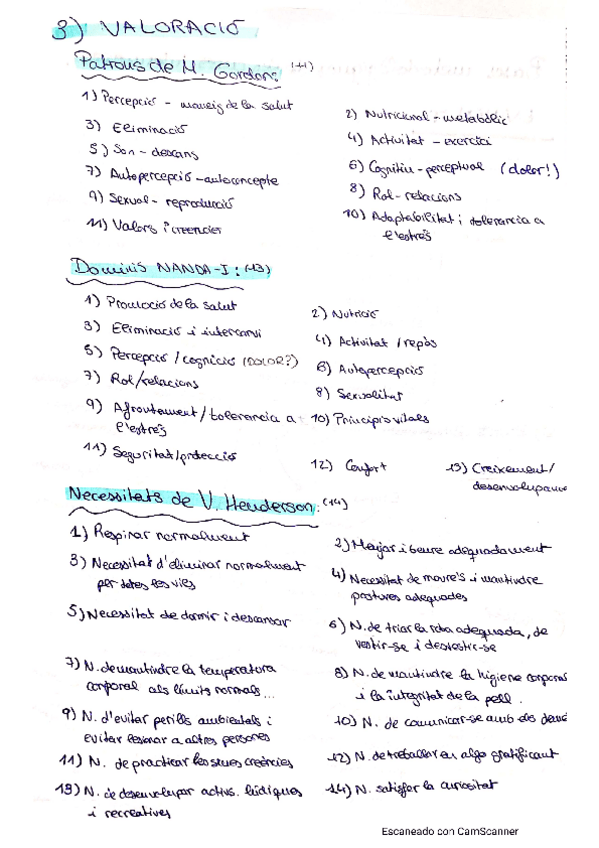 3) VALORACIÓ
Patrons de M. Gordon: (11)
1) Percepció - maneig de la salut
2) Nutricional - metabòlic
3) Eliminació
4) Activitat - exercici
5) Son - descans
6) Cognitiu - perceptual (dolor!)
7) Autopercepció - autoconcepte
8) Rol - relacions
9) Sexual - reproducció
10) Adaptabilitat i tolerancia a
l'estrés
11) Valors i creencies
Dominis NANDA-I: (13)
1) Promoció de la salut
2) Nutrició
3) Eliminació i intercanvi
4) Activitat / repòs
5) Percepció / cognició (DOLOR?)
6) Autopercepció
7) Rol/relacions
8) Sexualitat
9) Afrontament / tolerancia a
l'estrés
10) Principis vitals
11) Seguritat/protecció
12) Confort
13) Creixement/
desenvolupament
Necessitats de V. Henderson: (14)
1) Respirar normalment
2) Menjar i beure adequadament
3) Necessitat d'eliminar normalment
per totes les vies
4) Necessitat de moure's i mantindre
postures adequades
5) Necessitat de dormir i descansar
6) N. de triar la roba adequada, de
vestir-se i desvestir-se
7) N. de mantindre la temperatura
corporal als límits normals...
8) N. de mantindre la higiene corporal
i la integritat de la pell.
9) N. d'evitar perills ambientals i
evitar lesionar a altres persones
10) N. de comunicar-se amb els demés
11) N. de practicar les seues creències
12) N. de treballar en algo gratificant
13) N. de desenvolupar activs. lúdiques
i recreatives
14) N. satisfer la curiositat
Escaneado con CamScanner